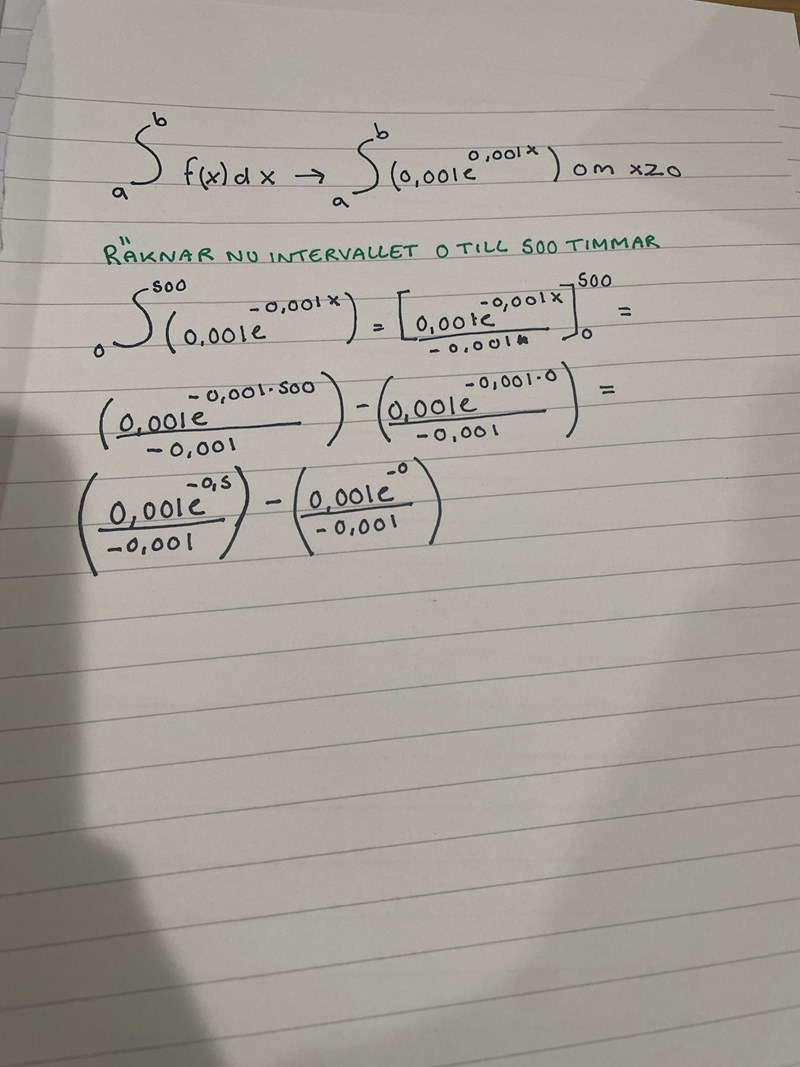 ∫_a^b f(x)dx → ∫_a^b (0,001e^(0,001x)) om x≥0
RÄKNAR NU INTERVALLET 0 TILL 500 TIMMAR
∫_0^500 (0,001e^(-0,001x)) = [0,001e^(-0,001x) / -0,001]_0^500 =
(0,001e^(-0,001·500) / -0,001) - (0,001e^(-0,001·0) / -0,001) =
(0,001e^(-0,5) / -0,001) - (0,001e^(-0) / -0,001)